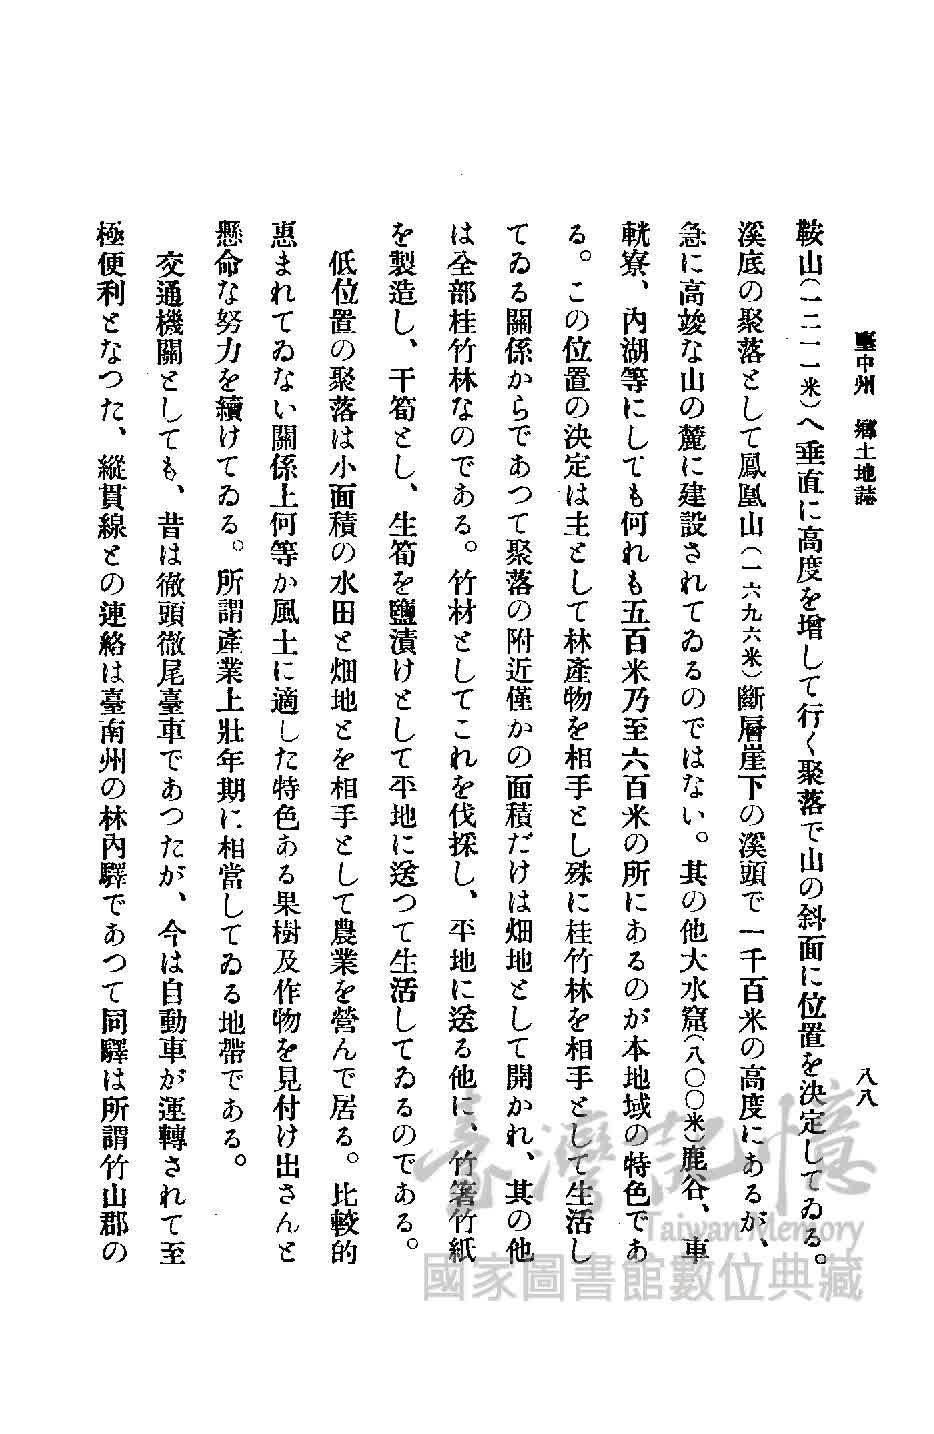 臺中州　鄕土地誌
八八
鞍山(一二一一米)へ垂直に高度を增して行く聚落で山の斜面に位置を決定してゐる。
溪底の聚落として鳳凰山(一六九六米)斷層崖下の溪頭で一千百米の高度にあるが、
急に高竣な山の麓に建設されてゐるのではない。其の他大水窟(八〇〇米)鹿谷、車
輄寮、內湖等にしても何れも五百米乃至六百米の所にあるのが本地域の特色であ
る。この位置の決定は主として林產物を相手とし殊に桂竹林を相手として生活し
てゐる關係からであつて聚落の附近僅かの面積だけは畑地として開かれ、其の他
は全部桂竹林なのである。竹材としてこれを伐採し、平地に送る他に、竹箸竹紙
を製造し、干筍とし、生筍を鹽漬けとして平地に送つて生活してゐるのである。
低位置の聚落は小面積の水田と畑地とを相手として農業を營んで居る。比較的
惠まれてゐない關係上何等か風土に適した特色ある果樹及作物を見付け出さんと
懸命な努力を續けてゐる。所謂產業上壯年期に相當してゐる地帶である。
交通機關としても、昔は徹頭徹尾臺車であつたが、今は自動車が運轉されて至
極便利となつた、縱貫線との連絡は臺南州の林內驛であつて同驛は所謂竹山郡の
臺灣記憶
Taiwan Memory
國家圖書館數位典藏